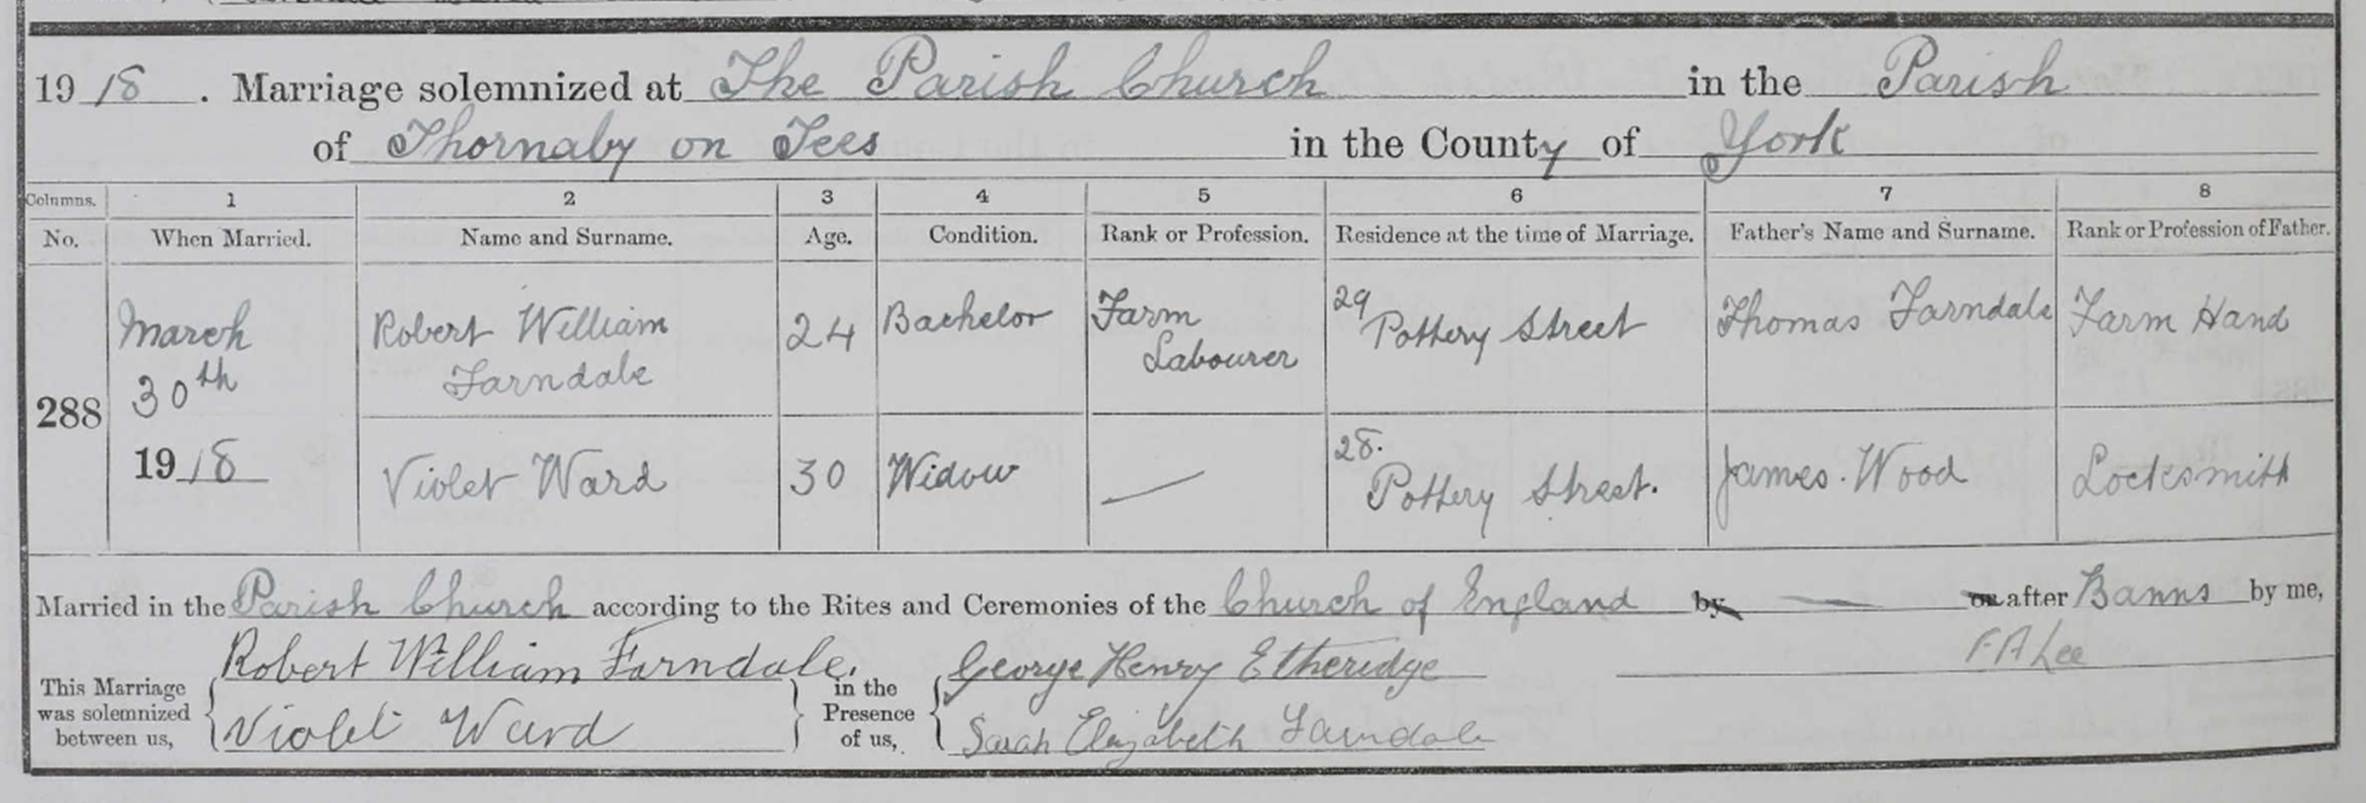 1918. Marriage solemnized at The Parish Church in the Parish
of Thornaby on Tees in the County of York
Columns. 1 2 3 4 5 6 7 8
No. When Married. Name and Surname. Age. Condition. Rank or Profession. Residence at the time of Marriage. Father's Name and Surname. Rank or Profession of Father.
288
March
30th
1918
Robert William
Farndale
24
Bachelor
Farm
Labourer
29
Pottery Street
Thomas Farndale
Farm Hand
Violet Ward
30
Widow
—
28.
Pottery Street.
James. Wood
Locksmith
Married in the Parish Church according to the Rites and Ceremonies of the Church of England by — or after Banns by me,
This Marriage
was solemnized
between us,
Robert William Farndale,
Violet Ward
in the
Presence
of us,
George Henry Etheridge
Sarah Elizabeth Farndale
F A Lee